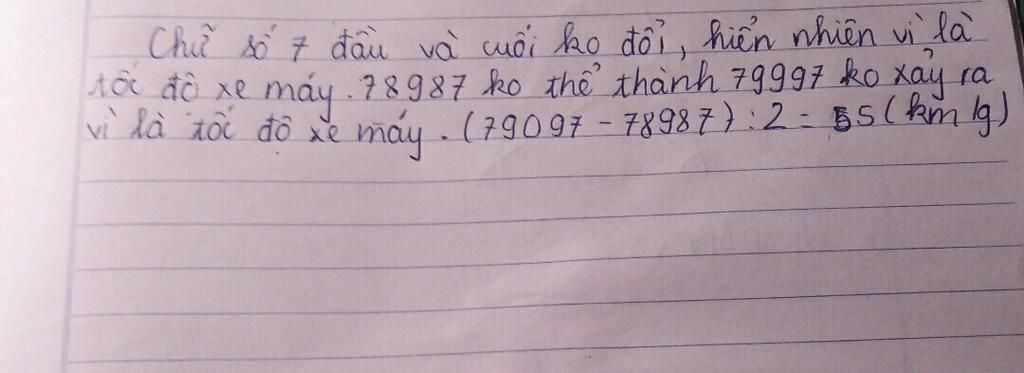 Chữ số 7 đầu và cuối ko đổi, hiển nhiên vì là
tốc độ xe máy. 78987 ko thể thành 79997 ko xảy ra
vì là tốc độ xe máy. (79097 - 78987) : 2 = 55 (km/g)